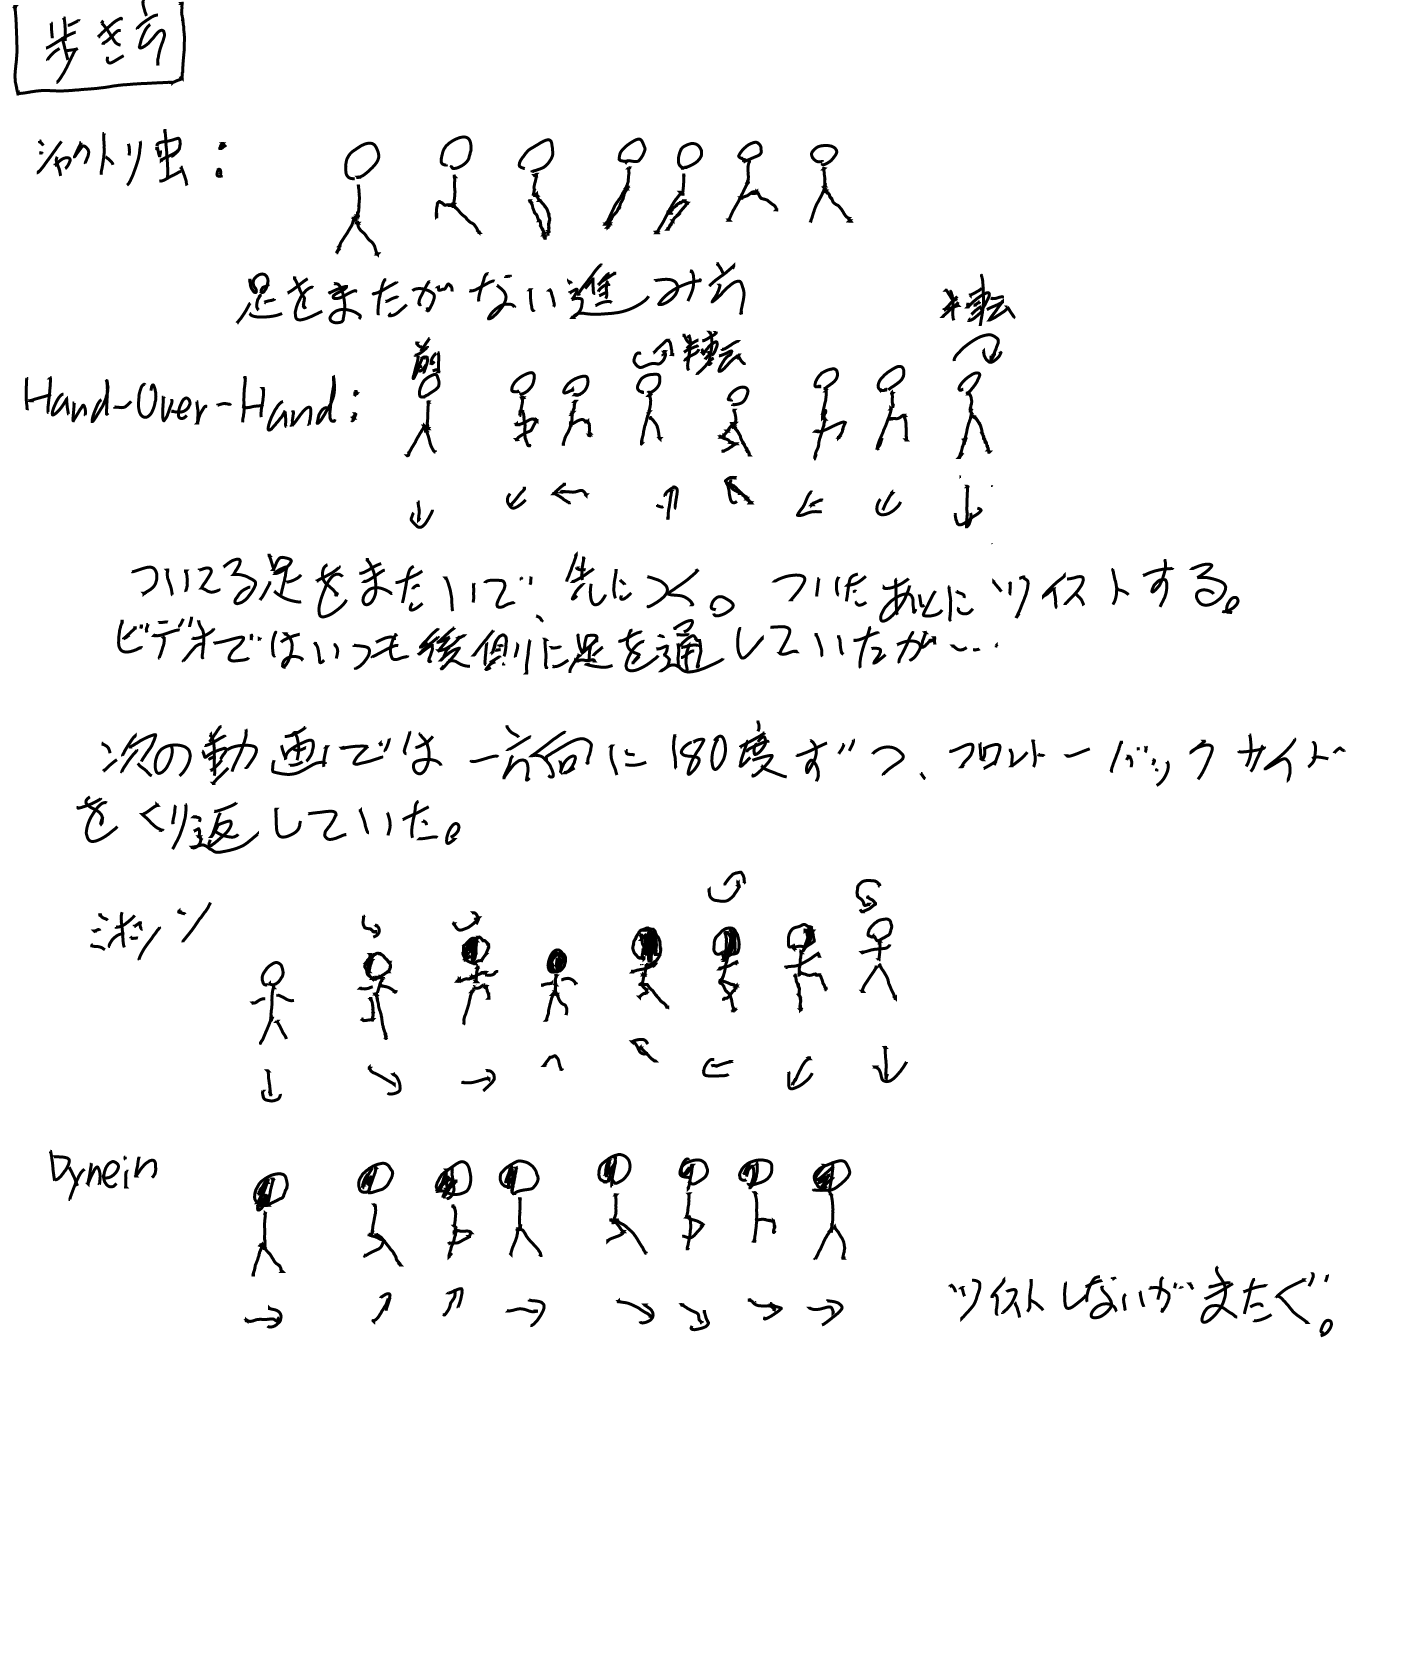 歩き方
シャクトリ虫：
足をまたがない進み方
半転
前
半転
Hand-Over-Hand：
ついてる足をまたいで、先につく。ついたあとにツイストする。
ビデオではいつも後側に足を通していたが…
次の動画では一方向に180度ずつ、フロントーバックサイド
をくり返していた。
ミオシン
Dynein
ツイストしないがまたぐ。